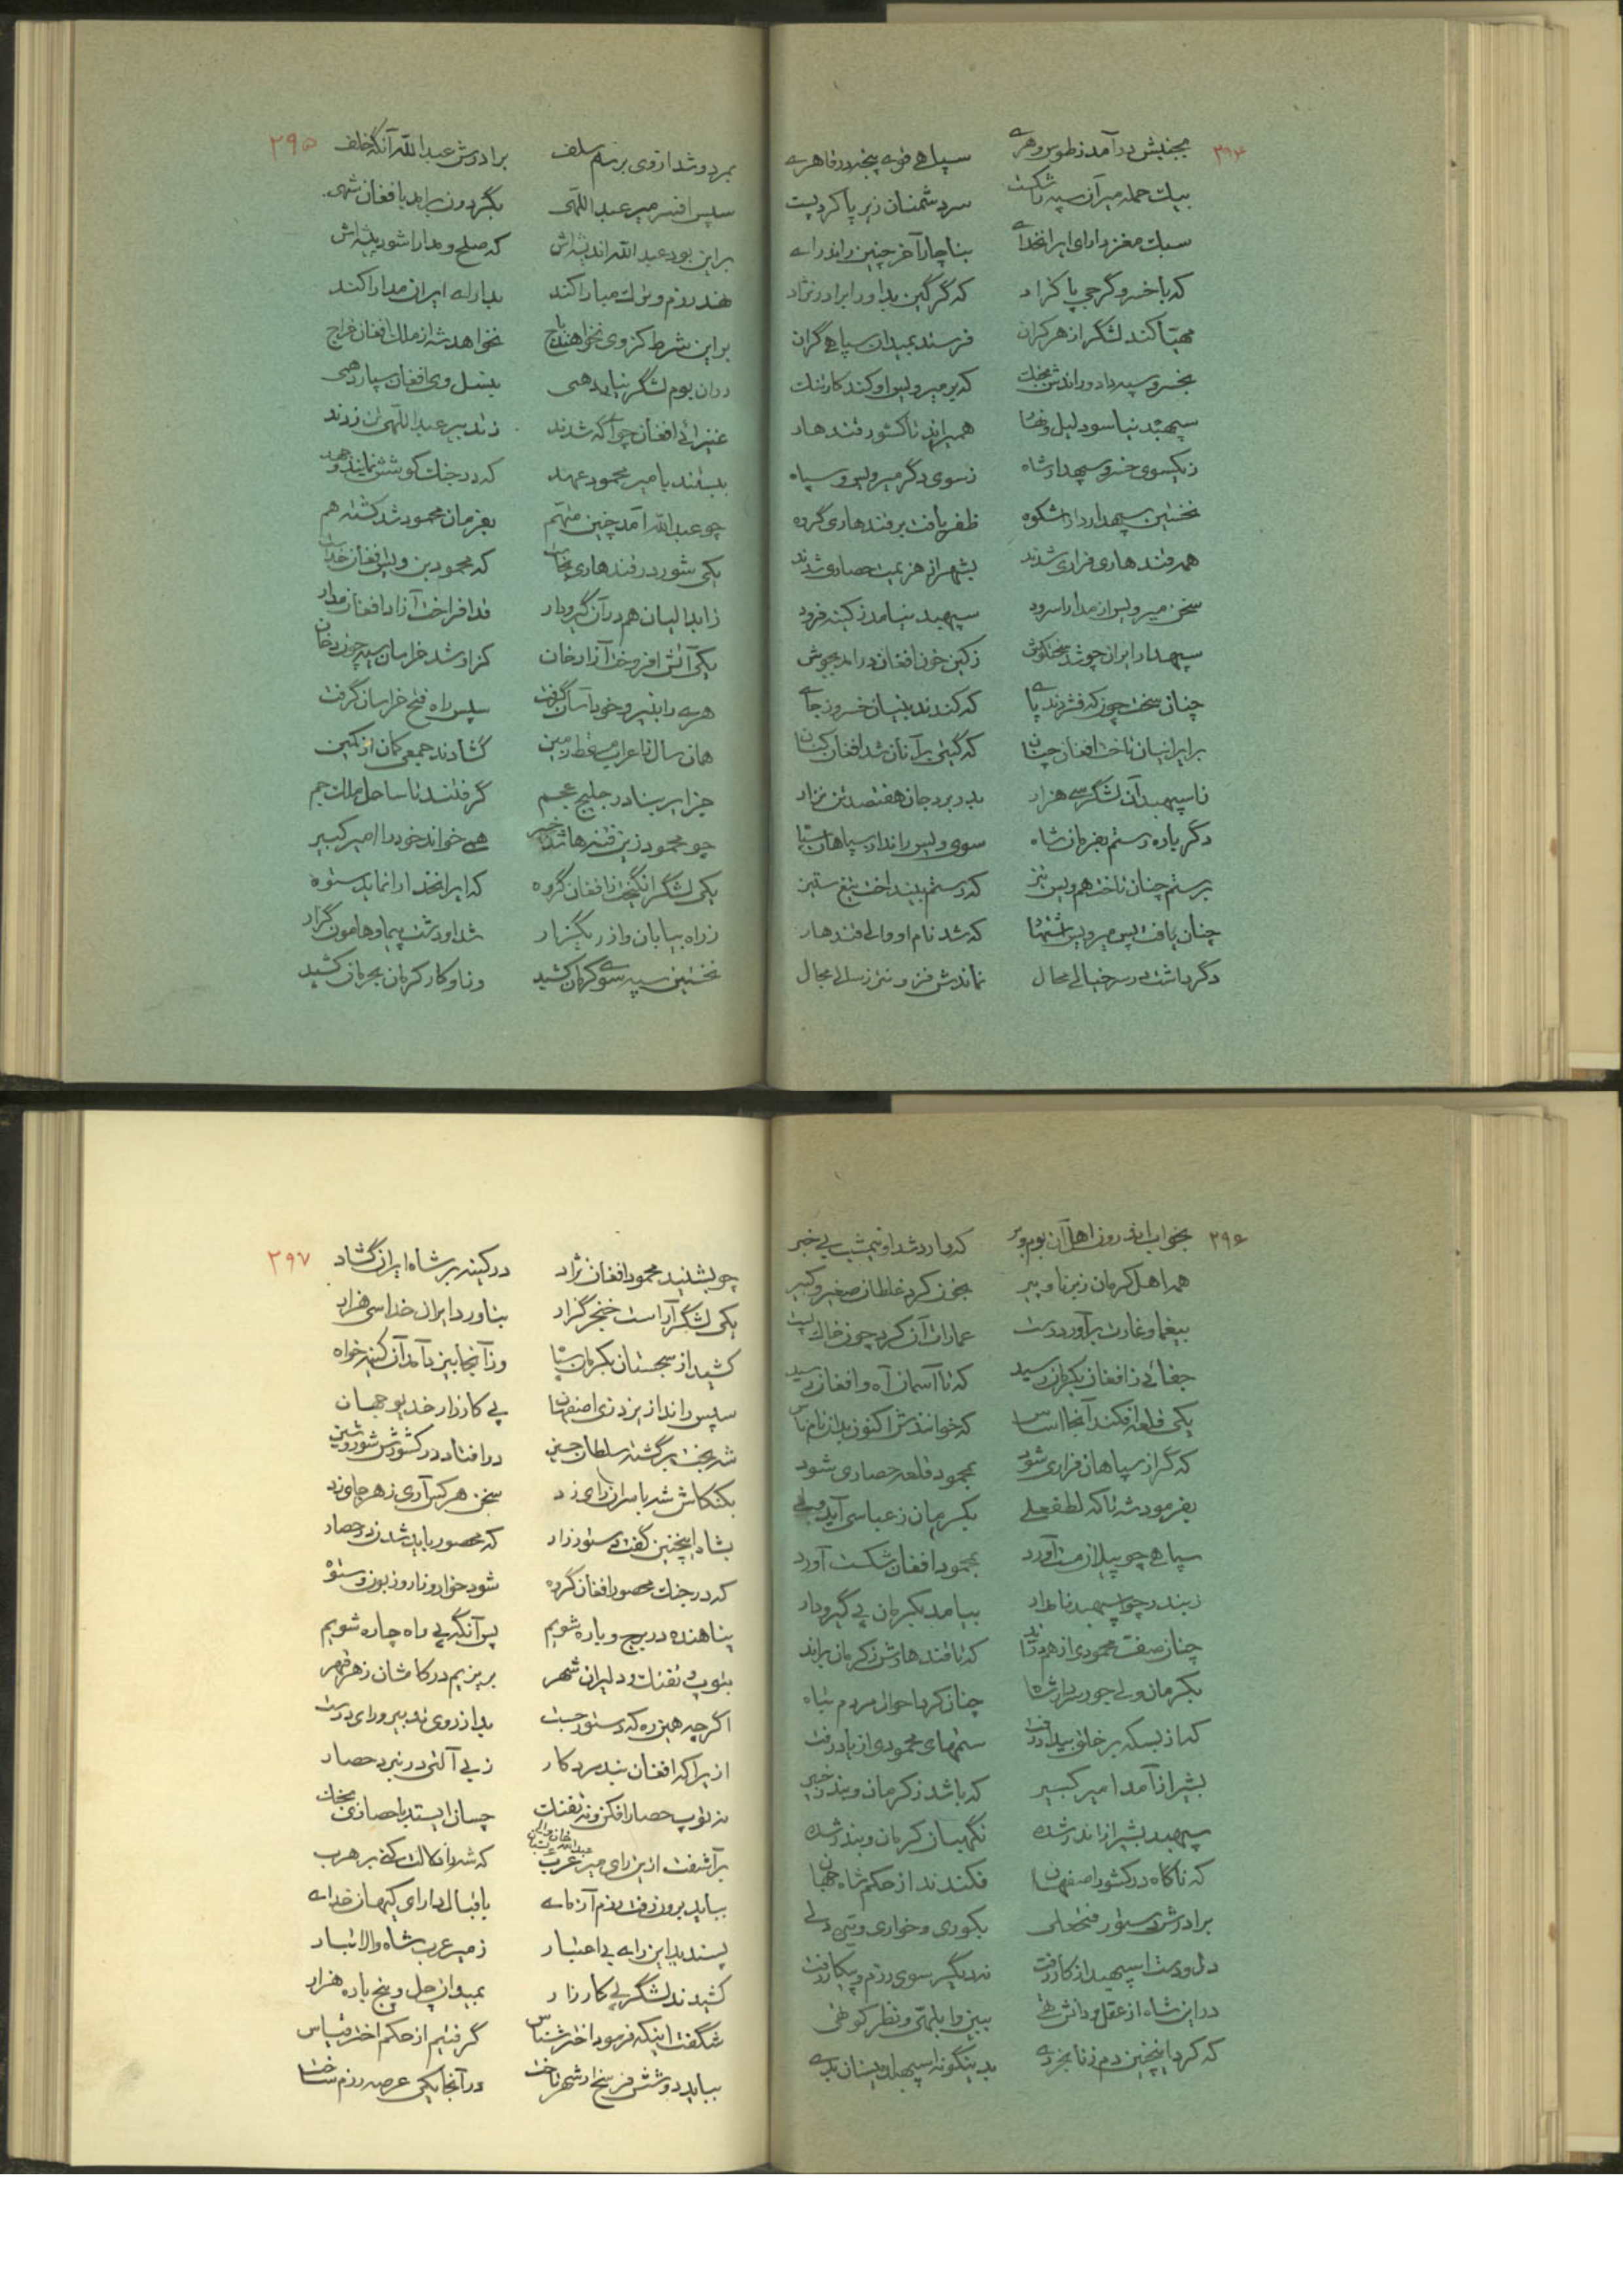 ۲۹۴
بجنبش درآمد ز طوس و هری سپاهی قوی پنجه و قاهری
بیک حمله میر آن سپه را شکست سر دشمنان زیر پا کرد پست
سبک مغز دارای ایرانخدای بناچار آخر چنین راند رای
که با خسرو گرجی پاکزاد که گرگین بد او را برادر نژاد
مهیا کند لشگر از هر کران فرستد بمیدان سپاهی گران
بخسرو سپه داد و راندش بجنک که بر میرویس او کند کار تنک
سپهبد نیاسود لیل و نهار همیراند تا کشور قندهار
ز یکسوی خسرو سپهدار شاه ز سوی دگر میرویس و سپاه
نخستین سپهدار دارا شکوه ظفر یافت بر قندهاری گروه
همه قندهاری فراری شدند بشهر از هزیمت حصاری شدند
سخن میرویس از مدارا سرود سپهبد نیامد ز کینه فرود
سپهدار ایران چو نشد سخنکوش ز کین خون افغان درآمد بجوش
چنان سخت چون که فشردند پای که کندند بنیان خسرو ز جای
بر ایرانیان تاخت افغان چنان که گیتی بر آنان شد افغان کنان
تا سپهبد آن لشگر سی هزار بدر برد جان هفتصد تن نزار
دگر باره رستم بفرمان شاه سوی ویس راند از سپاهان سپاه
برستم چنان تاخت هم ویس نیز که رستم بینداخت تیغ ستیز
چنان یافت پس میرویس اشتهار که شد نام او والی قندهار
دگر داشت در سر خیالی محال نماندش فزونتر ز سالی مجال
۲۹۵
بمرد و شد از وی برسم سلف برادرش عبدالله آنگه خلف
سپس افسر میر عبداللهی بگردون برآمد بافغان شهی
بر این بود عبدالله اندیشه‌اش که صلح و مدارا شود پیشه‌اش
نهد رزم و ترک مبارا کند بدارای ایران مدارا کند
بر این شرط کز وی نخواهند باج نخواهد شه از ملک افغان خراج
در آن بوم لشگر نیاید همی بنسل وی افغان سپارد همی
غلزائی افغان چو آگه شدند ز تدبیر عبداللهی تن زدند
ببستند با میر محمود عهد که در جنک کوشش نمایند و جهد
چو عبدالله آمد چنین متهم بفرمان محمود شد کشته هم
یکی شور در قندهاری بخاست که محمود بن ویس افغان خداست
ز ابدالیان هم در آن گیر و دار قد افراخت آزاد افغان مدار
یکی آتش افروخت آزاد خان کز او شد خراسان سیه چون دخان
هری را بنیرو خود آسان گرفت سپس راه فتح خراسان گرفت
همان سال تا عرب مسقط زمین گشادند جمعی کمان از کمین
جزایر سنادر خلیج عجم گرفتند تا ساحل ملک جم
چو محمود زین فتنه‌ها شد خبیر همی خواند خود را امیر کبیر
یکی لشگر انگیخت ز افغان گروه که ایرانخدا را نماید ستوه
ز راه بیابان و از ریگزار شد او دشت پیما و هامون گذار
نخستین سپه سوی کرمان کشید وز او کار کرمان بحرمان کشید
۲۹۶
بخواب اندرون اهل آن بوم و بر که وارد شد او نیمشب بی خبر
همه اهل کرمان ز برنا و پیر بخون کرد غلطان صغیر و کبیر
بیغما و غارت برآورد دست عمارات آن کرد چون خاک پست
جفائی ز افغان بکرمان رسید که تا آسمان آه و افغان رسید
یکی قلعه افکند آنجا اساس که خوانندش اکنون بدان نام ناس
که گر از سپاهان فراری شود بمحمود قلعه حصاری شود
بفرمود شه تا که لطفعلی بکرمان ز عباسی آید ولی
سپاهی چو پیلان مست آورد بمحمود افغان شکست آورد
ز بندر چو اسپهبد نامدار بیامد بکرمان پی گیر و دار
چنان صف محمودی از هم دراند که تا قندهارش ز کرمان براند
بکرمان ولی جور سردار شاه چنان کرد احوال مردم تباه
که از بسکه بر خلق بیداد رفت ستمهای محمودی از یاد رفت
بشیراز آمد امیر کبیر که باشد ز کرمان و بندر خبیر
سپهبد بشیراز اندر شده نگهبان کرمان و بندر شده
که ناگاه در کشور اصفهان فکندند از حکم شاه جهان
برادرش دستور فتحعلی بکوری و خواری و تیره دلی
دل و دست اسپهبد از کار رفت نه دیگر سوی رزم و پیکار رفت
در این شاه از عقل و دانش تهی ببین وابلهی و نظر کوتهی
که کرد اینچنین دم ز نابخردی بدینگونه اسپهبدیشان بدی
۲۹۷
چو بشنید محمود افغان نژاد در کینه بر شاه ایران گشاد
یکی لشگر آراست خنجر گزار بناورد ایران خدا سی هزار
کشید از سجستان بکرمان سپاه وز آنجا بیزد آمد آن کینه خواه
سپس راند از یزد زی اصفهان پی کارزار خدیو جهان
شه بخت برگشته سلطان حسین در افتاد در کشورش شور و شین
بکنکاش شه با سران رای زد سخن هر کس آری ز هر جای زد
بشاه اینچنین گفت دستور زار که محصور باید شدن در حصار
که در جنک محصور افغان گروه شود خوار و زار و زبون و ستوه
پناهنده در برج و باره شویم پس آنگه پی راه چاره شویم
بتوپ و تفنک و دلیران شهر بریزیم در کامشان زهر قهر
اگر چه همین ره که دستور جست بد از روی تدبیر و رای درست
ازیرا که افغان بند مرد کار ز بی آلتی در نبرد حصار
نه توپ حصار افکن و نه تفنک چسان ایستد با حصاری بجنک
برآشفت از این رای میر عرب که شه را دلالت کنی بر هرب
عبدالله خان والی عربستان
بباید برون رفت رزم آزمای باقبال دارای کیهان خدای
پسندید این رای بی اعتبار ز میر عرب شاه والا تبار
کشیدند لشگر پی کارزار بمیدان چل و پنج باره هزار
شگفت اینکه فرمود اختر شناس گرفتیم از حکم اختر قیاس
بباید دو شش فرسخ از شهر تاخت در آنجا یکی عرصه رزم ساخت